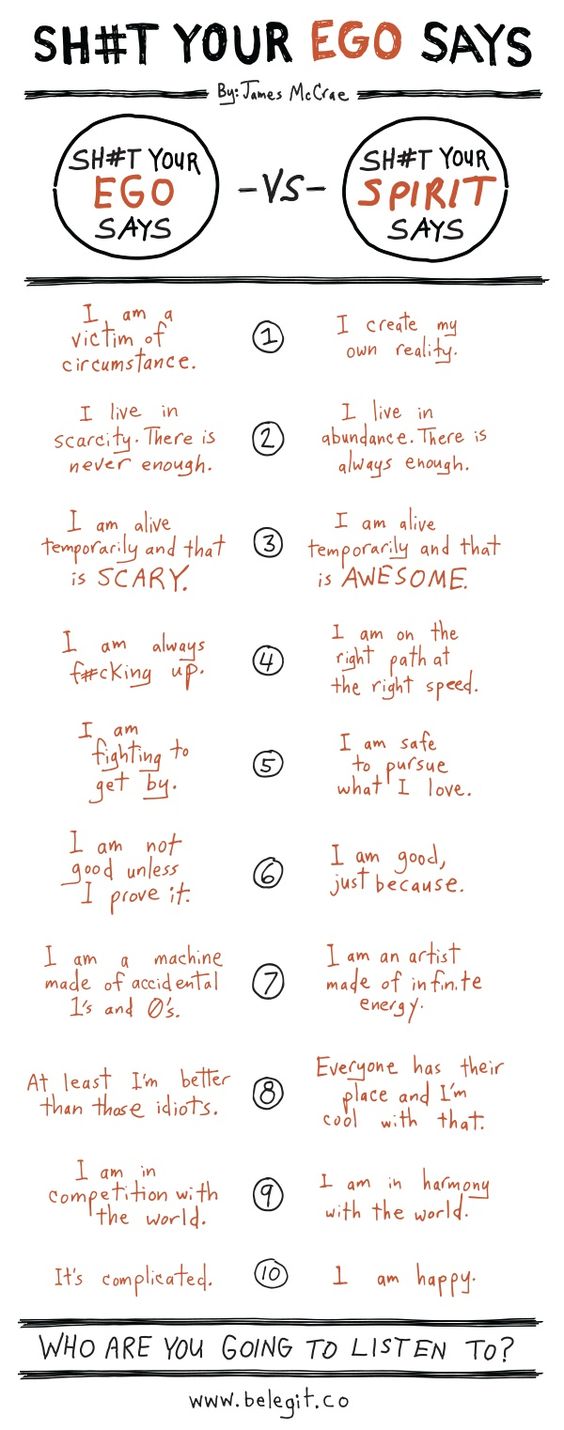 SH#T YOUR EGO SAYS
By: James McCrae
SH#T YOUR
EGO
SAYS
-VS-
SH#T YOUR
SPIRIT
SAYS
I am a
victim of
circumstance.
1
I create my
own reality.
I live in
scarcity. There is
never enough.
2
I live in
abundance. There is
always enough.
I am alive
temporarily and that
is SCARY.
3
I am alive
temporarily and that
is AWESOME.
I am always
f#cking up.
4
I am on the
right path at
the right speed.
I am
fighting to
get by.
5
I am safe
to pursue
what I love.
I am not
good unless
I prove it.
6
I am good,
just because.
I am a machine
made of accidental
1's and 0's.
7
I am an artist
made of infinite
energy.
At least I'm better
than those idiots.
8
Everyone has their
place and I'm
cool with that.
I am in
competition with
the world.
9
I am in harmony
with the world.
It's complicated.
10
I am happy.
WHO ARE YOU GOING TO LISTEN TO?
www.belegit.co